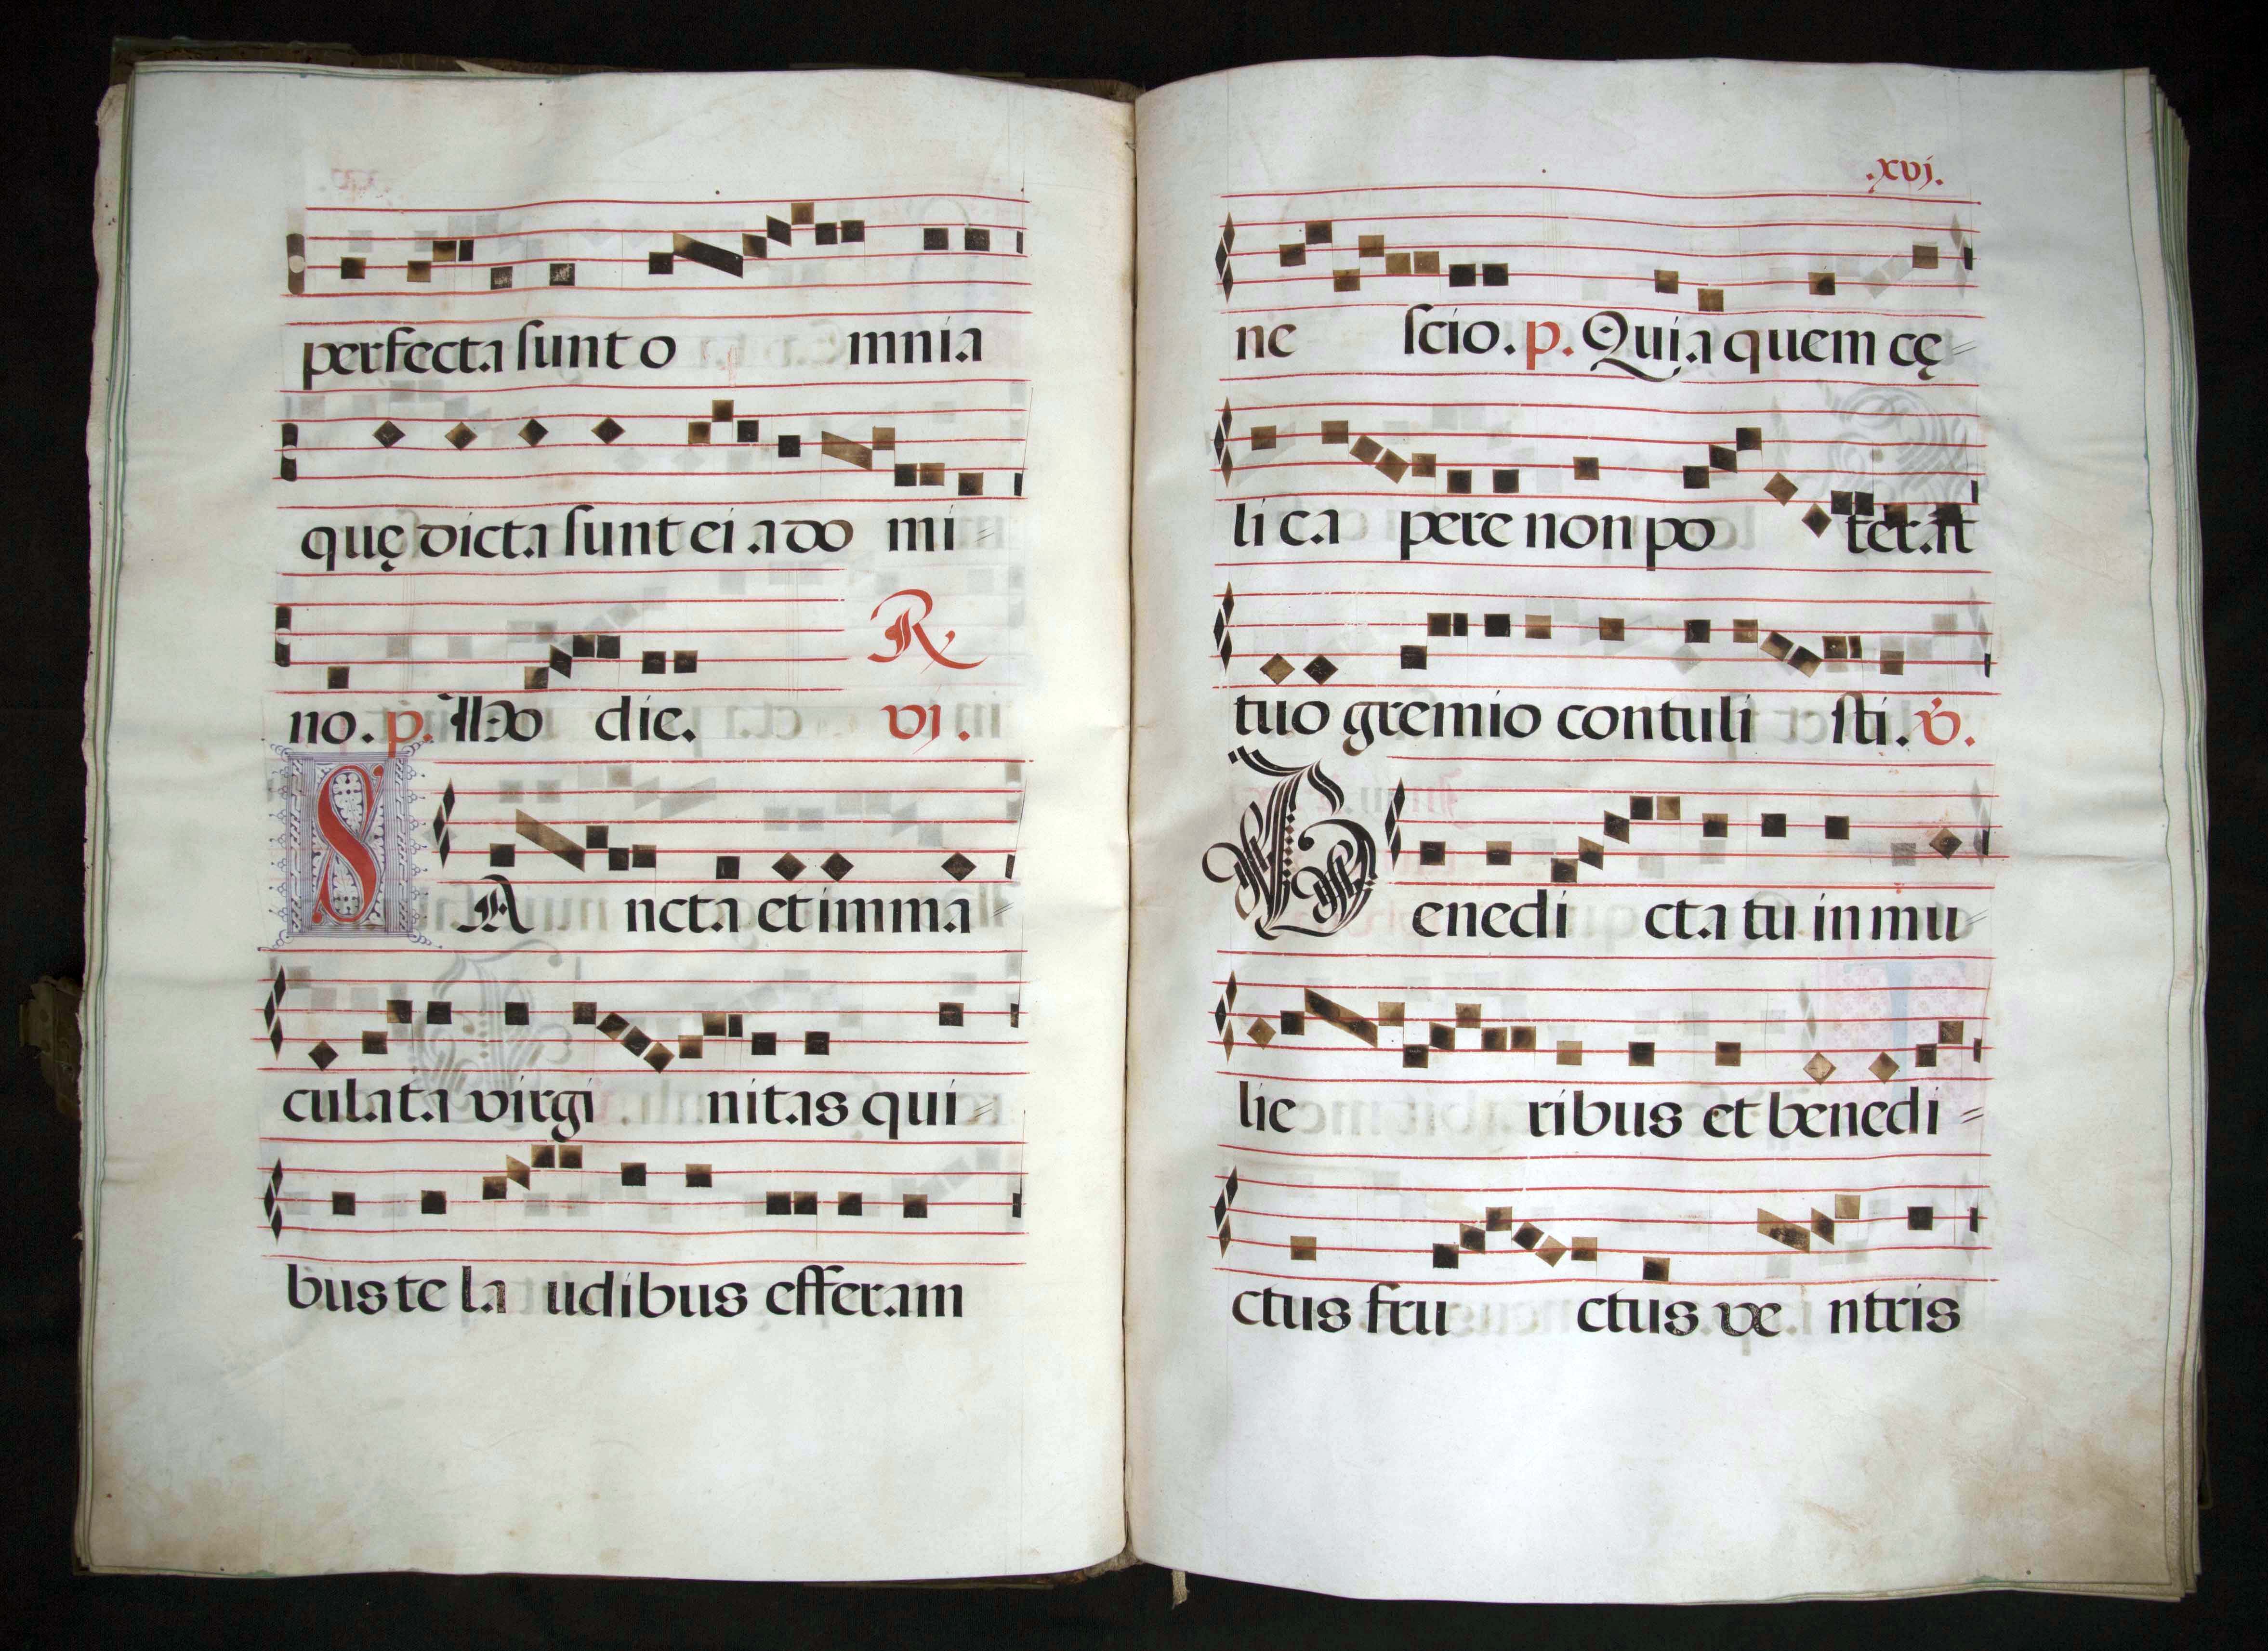 perfecta sunt o mnia
quę dicta sunt ei a do mi=
no. p. Illo die. R vj.
SA ncta et imma=
culata virgi nitas qui=
bus te la udibus efferam
.xvj.
ne scio. p. Quia quem cę=
li ca pere non po terat
tuo gremio contuli sti. v.
Benedi cta tu in mu=
lie ribus et benedi=
ctus fru ctus ve ntris